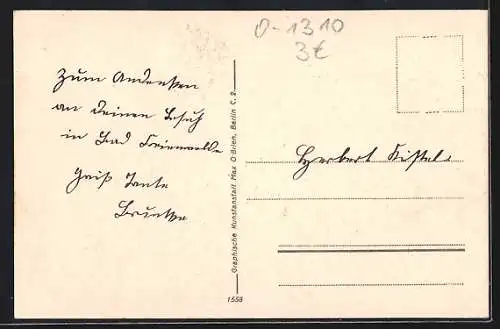 0-1310
3€
Zum Andenken
an deinen Besuch
in Bad Freienwalde
Tante
Herbert
Graphische Kunstanstalt Max O'Brien, Berlin C. 2
1558